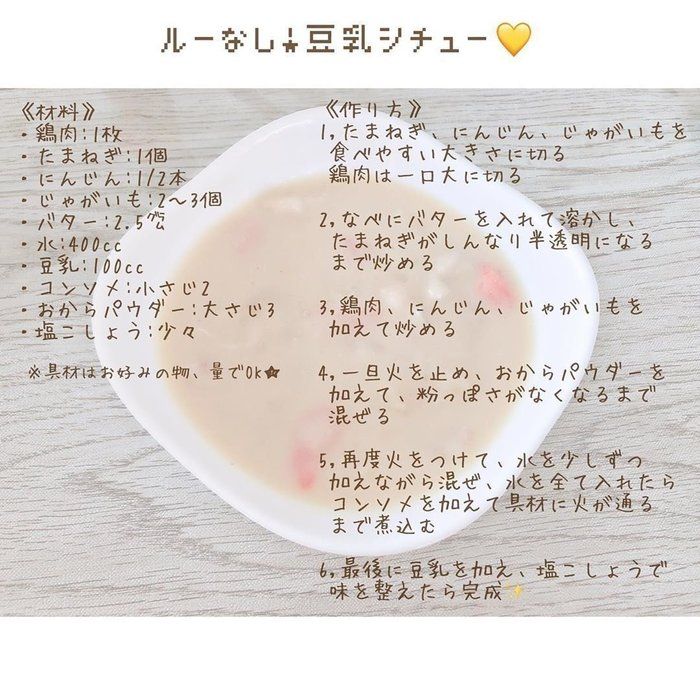 ルーなし↓豆乳シチュー💛
《材料》
・鶏肉:1枚
・たまねぎ:1個
・にんじん:1/2本
・じゃがいも:2〜3個
・バター:2,5㌘
・水:400cc
・豆乳:100cc
・コンソメ:小さじ2
・おからパウダー:大さじ3
・塩こしょう:少々
※具材はお好みの物、量でOK★
《作り方》
1,たまねぎ、にんじん、じゃがいもを
食べやすい大きさに切る
鶏肉は一口大に切る
2,なべにバターを入れて溶かし、
たまねぎがしんなり半透明になる
まで炒める
3,鶏肉、にんじん、じゃがいもを
加えて炒める
4,一旦火を止め、おからパウダーを
加えて、粉っぽさがなくなるまで
混ぜる
5,再度火をつけて、水を少しずつ
加えながら混ぜ、水を全て入れたら
コンソメを加えて具材に火が通る
まで煮込む
6,最後に豆乳を加え、塩こしょうで
味を整えたら完成✨